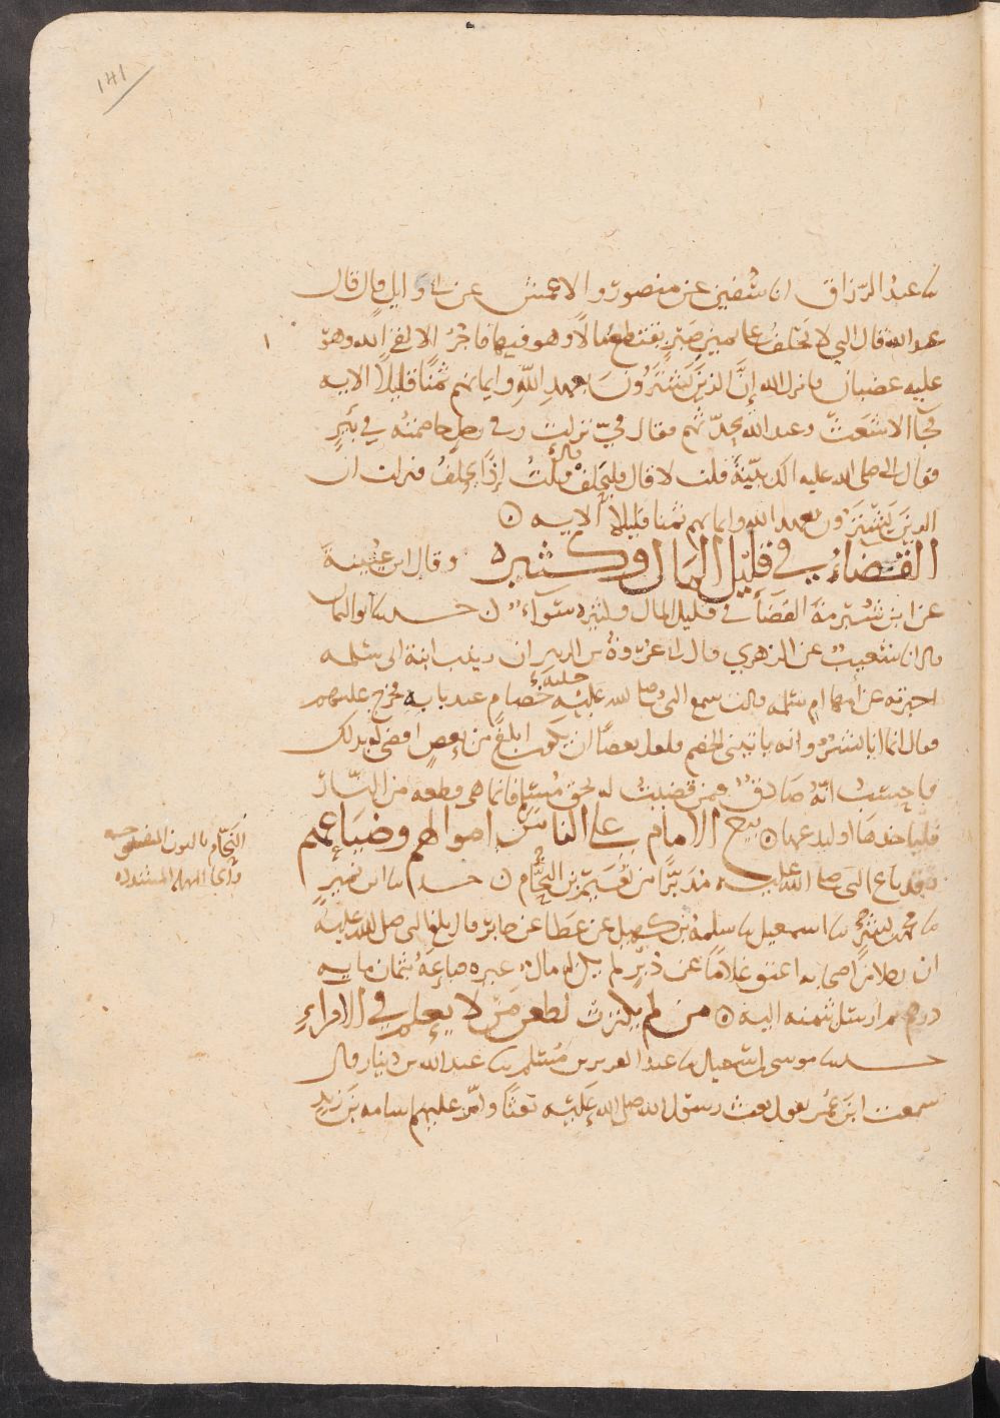 ١٤١
ثنا عبد الرزاق انا سُفين عن منصور والاعمش عن ابي وايل قال قال
عبد الله قال النبي لا يحلفُ على يمين صَبْرٍ يقتطع مالًا وهو فيها فاجرٌ الا لقي الله وهو
عليه غضبان فانزل الله إنَّ الذينَ يَشْتَرُونَ بعهدِ اللَّهِ وايمانهم ثمنًا قليلًا الايه
فجا الاشعَث وعبد الله يحدّثهم فقال فيّ نزلت وفي رجلٍ خاصمتُه في بئرٍ
فقال النبي صلى الله عليه الك بيّنةٌ قلت لا قال فليَحْلف قلتُ إذًا يحلفُ فنزلت ان
الذينَ يَشْتَرُونَ بعهد الله وايمانهم ثمنا قليلًا الايه
القضاءُ في قليل المال وكثيره وقال ابن عُيينةَ
عن ابن شُبْرمةَ القضآ في قليل المال وكثيره سَوآءٌ حدثنا ابو اليمان
قال انا شعيبٌ عن الزهري قال انا عُروةُ بن الزبير ان زينب ابنة ابي سلمه
اخبرته عن امها ام سلمه قالت سمع النبي صلى الله عليه خصام عند بابه فخرج عليهم
جلبةَ
فقال انما انا بَشَرٌ وانه ياتيني الخصم فلعل بعضًا ان يكون ابلغَ من بعضٍ اقضي له بذلك
واحسبُ انّهُ صَادقٌ فمن قضيتُ له بحق مُسْلمٍ فانما هي قطعه من النّارِ
فلياخذهَا او ليدعها بيع الامام على الناس اموالهم وضياعهم
وقد باع النبي صلى الله عليه مُدَبَّرًا من نُعَيم بن النحَّام حدثنا ابن نميرٍ
ثنا محمد بن بشرٍ ثنا اسمعيل ثنا سلمةُ بن كهيل عن عطَا عن جابر قال بلغ النبي صلى الله عليه
ان رجلا من اصحابه اعتق غلامًا عن دُبُرٍ لم يكن له مال غيره فباعَهُ بثمان مايه
درهم ثم ارسل بثمنه اليه من لم يكترث لطعن مَنْ لا يعلم في الامراءِ
حدثنا موسى بن اسمعيل ثنا عبد العزيز بن مُسْلم ثنا عبد الله بن دينار قال
سمعت ابنَ عُمَر يقول بعث رسول الله صلى الله عليه بعثًا وامّر عليهم اسامه بنَ زيدٍ
النحّام بالنون المفتوحه
والحا المهمله المشدده